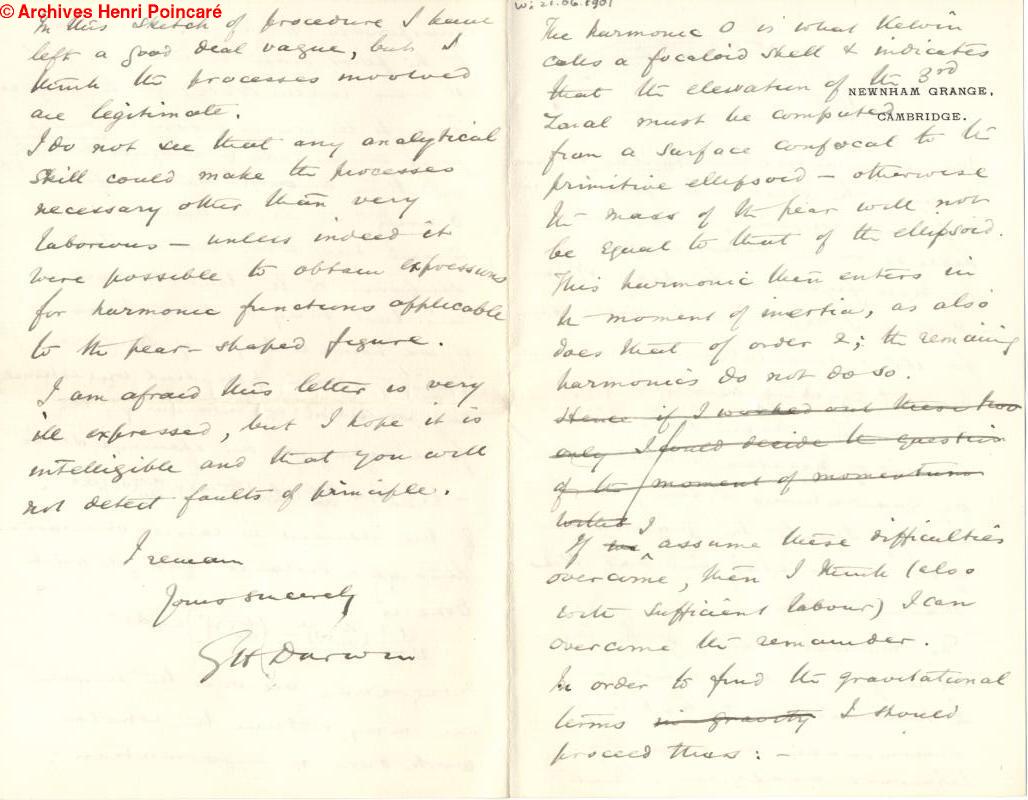 © Archives Henri Poincaré
In this sketch of procedure I have
left a good deal vague, but I
think the processes involved
are legitimate.
I do not see that any analytical
skill could make the processes
necessary other than very
laborious – unless indeed it
were possible to obtain expressions
for harmonic functions applicable
to the pear-shaped figure.
I am afraid this letter is very
ill expressed, but I hope it is
intelligible and that you will
not detect faults of principle.
I remain
Yours sincerely
G H Darwin
W: 21.06.1901
The harmonic 0 is what Kelvin
calls a focaloid shell & indicates
that the elevation of the 3rd
NEWNHAM GRANGE,
CAMBRIDGE.
zonal must be computed
from a surface confocal to the
primitive ellipsoid – otherwise
the mass of the pear will not
be equal to that of the ellipsoid.
This harmonic then enters in
the moment of inertia, as also
does that of order 2; the remaining
harmonics do not do so.
Hence if I worked out these two
only I could decide the question
of the moment of momentum
If I assume these difficulties
overcome, then I think (also
with sufficient labour) I can
overcome the remainder.
In order to find the gravitational
terms in gravity I should
proceed thus: –